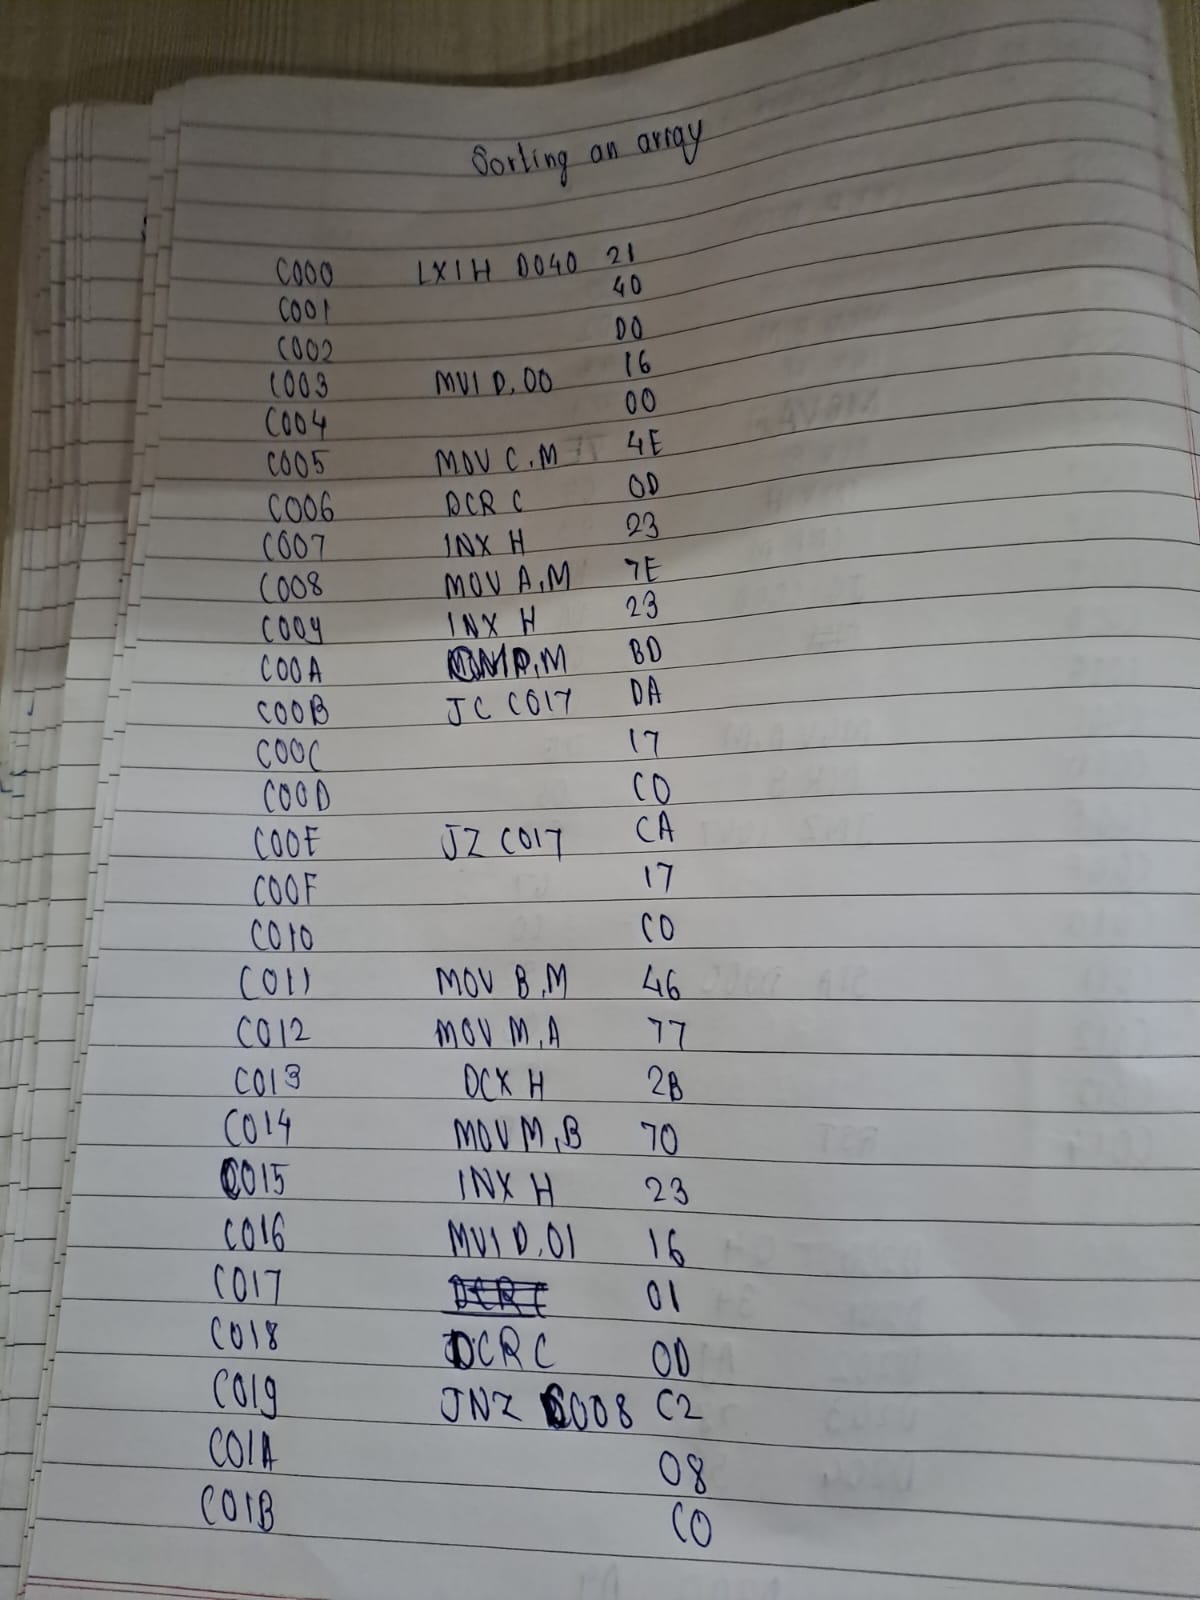 Sorting an array
C000 LXI H D040 21
C001 40
C002 D0
C003 MVI D, 00 16
C004 00
C005 MOV C, M 4E
C006 DCR C 0D
C007 INX H 23
C008 MOV A, M 7E
C009 INX H 23
C00A M BD
C00B JC C017 DA
C00C 17
C00D C0
C00E JZ C017 CA
C00F 17
C010 C0
C011 MOV B, M 46
C012 MOV M, A 77
C013 DCX H 2B
C014 MOV M, B 70
C015 INX H 23
C016 MVI D, 01 16
C017 01
C018 DCR C 0D
C019 JNZ C008 C2
C01A 08
C01B C0